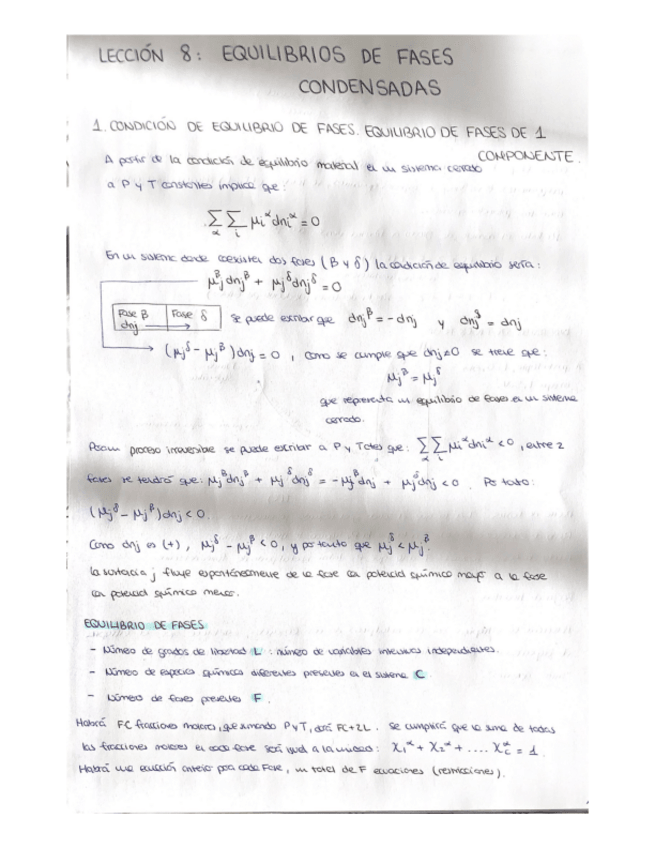 LECCIÓN 8: EQUILIBRIOS DE FASES
CONDENSADAS
1. CONDICIÓN DE EQUILIBRIO DE FASES. EQUILIBRIO DE FASES DE 1
COMPONENTE.
A partir de la condición de equilibrio material en un sistema cerrado
a P y T constantes implica que:
∑α ∑i μi^α dni^α = 0
En un sistema donde coexisten dos fases (β y δ) la condición de equilibrio sería:
μj^β dnj^β + μj^δ dnj^δ = 0
Fase β Fase δ
dnj →
Se puede escribir que dnj^β = - dnj y dnj^δ = dnj
(μj^δ - μj^β) dnj = 0, como se cumple que dnj ≠ 0 se tiene que:
μj^β = μj^δ
que representa un equilibrio de fases en un sistema
cerrado.
Para un proceso irreversible se puede escribir a P y T ctes que: ∑α ∑i μi^α dni^α < 0, entre 2
fases se tendrá que: μj^β dnj^β + μj^δ dnj^δ = -μj^β dnj + μj^δ dnj < 0. Por tanto:
(μj^δ - μj^β) dnj < 0.
Como dnj es (+), μj^δ - μj^β < 0, y por tanto que μj^δ < μj^β.
La sustancia j fluye espontáneamente de la fase con potencial químico mayor a la fase
con potencial químico menor.
EQUILIBRIO DE FASES
- Número de grados de libertad L : número de variables intensivas independientes.
- Número de especies químicas diferentes presentes en el sistema C.
- Número de fases presentes F.
Habrá FC fracciones molares, que sumando P y T, dará FC+2L. Se cumplirá que la suma de todas
las fracciones molares en cada fase será igual a la unidad: X1^α + X2^α + .... Xc^α = 1.
Habrá una ecuación anterior para cada Fase, un total de F ecuaciones (restricciones).